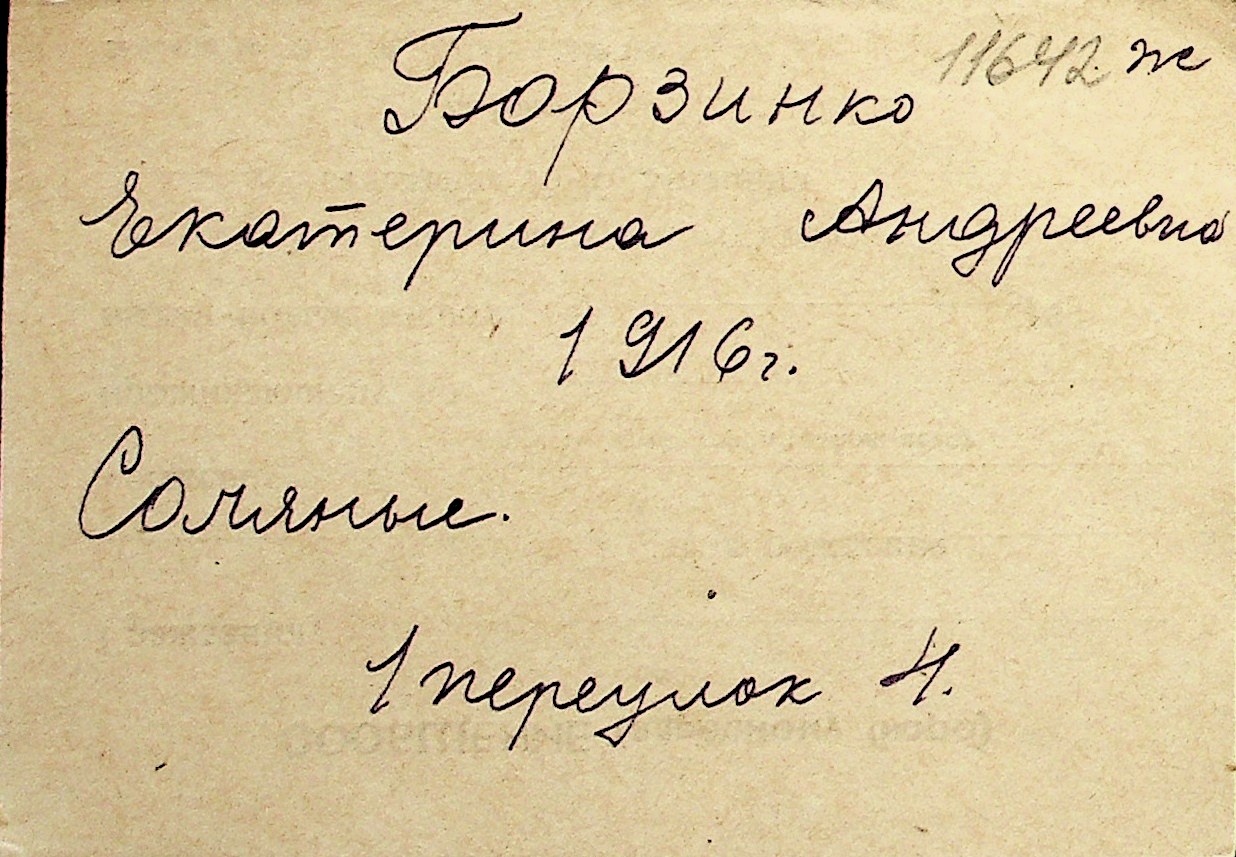 Борзинко 11642 ж
Екатерина Андреевна
1916 г.
Соляные.
1 переулок 4.